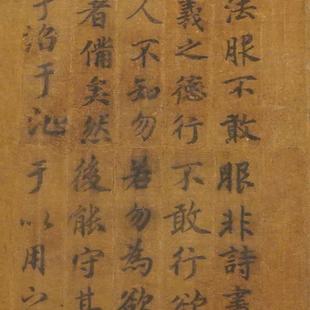 法服不敢服非詩書
義之德行不敢行欲
人不知勿若勿為欲
者備矣然後能守其
于沼于沚于以用